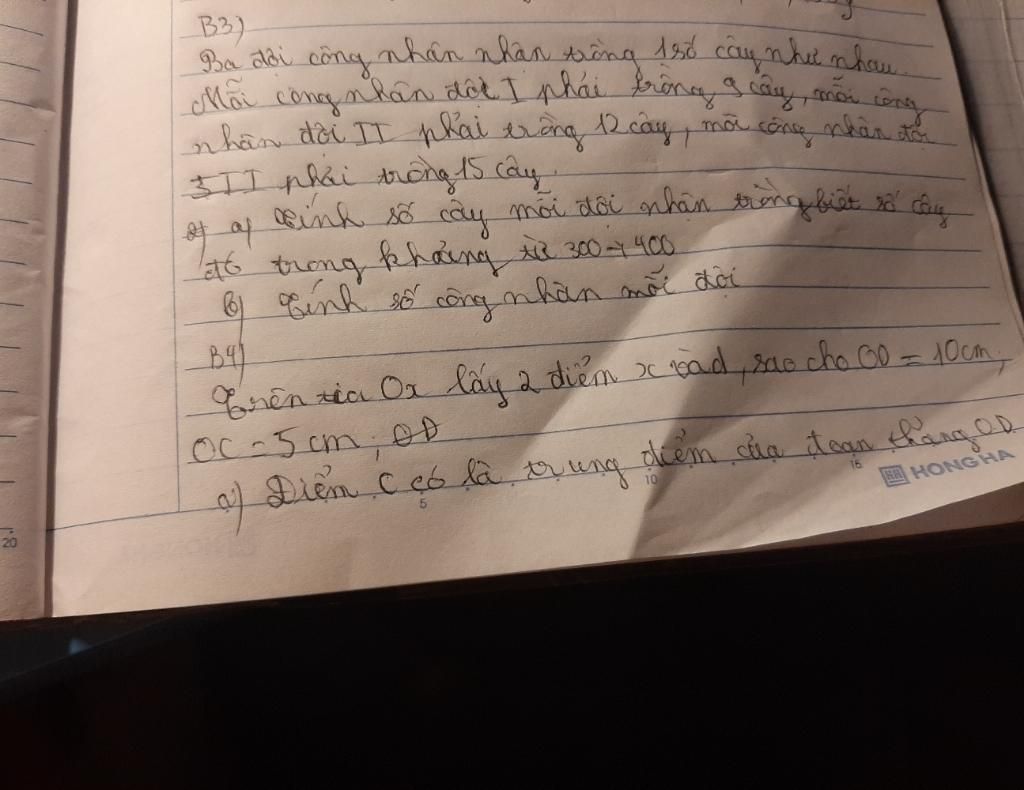 B3)
Ba đội công nhân nhân trồng 1 số cây như nhau.
Mỗi công nhân đội I phải trồng 9 cây, mỗi công
nhân đội II phải trồng 12 cây, mỗi công nhân đội
III phải trồng 15 cây.
a) Tính số cây mỗi đội nhận trồng biết số cây
đó trong khoảng từ 300 → 400
b) Tính số công nhân mỗi đội
B4)
Trên tia Ox lấy 2 điểm x và d, sao cho OD = 10cm;
OC = 5 cm; OD
a) Điểm C có là trung điểm của đoạn thẳng OD
5 10 15
HONG HA
20